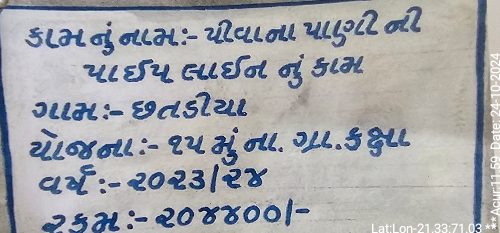 કામનું નામ:- પીવાના પાણી ની
પાઈપ લાઈન નું કામ
ગામ:- છતડીયા
યોજના:- ૧૫ મું ના. ગ્રા. કક્ષા
વર્ષ:- ૨૦૨૩/૨૪
રકમ:- ૨૦૪૪૦૦/-
Lat:Lon-21.33:71.03
11:59 Date:24-10-2024